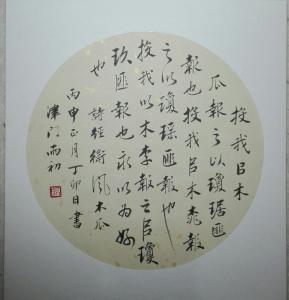 投我㠯木
瓜報之以瓊琚匪
報也投我㠯木桃報
之以瓊瑤匪報也
投我以木李報之㠯瓊
玖匪報也永以為好
也 詩經衛風木瓜
丙申正月丁卯日書
津门雨初